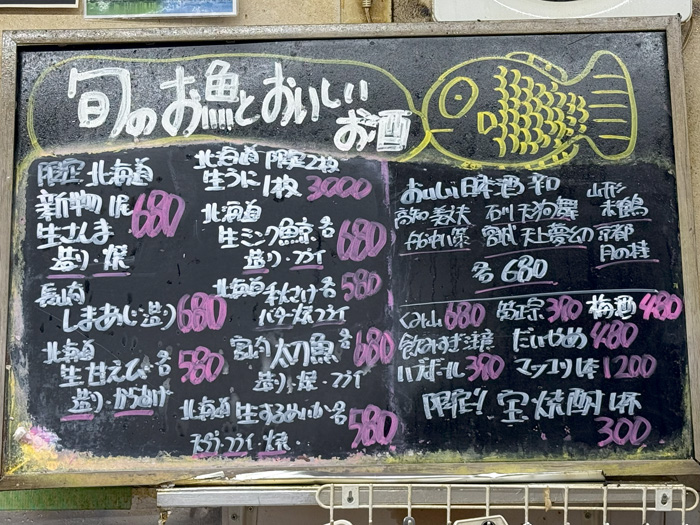 旬のお魚とおいしい
お酒
限定 北海道
新物 1尾 680
生さんま
造り・焼
長崎
しまあじ造り 680
北海道
生甘えび 各 580
造り・からあげ
北海道 限定2枚
生うに 1枚 3000
北海道
生ミンク鯨 各 680
造り・フライ
北海道 秋さけ 各 580
バター焼 フライ
宮内 太刀魚 各 680
造り・焼・フライ
北海道 生するめいか 各 580
フライ・焼
おいしい日本酒
高知 石川 天狗舞
山形
宮城 天上夢幻
京都
月の桂
各 680
680 380 梅酒 480
飲みすぎ注意 だいやめ 480
ハイボール 380 マッコリ1本 1200
限定! 宝焼酎1杯
300